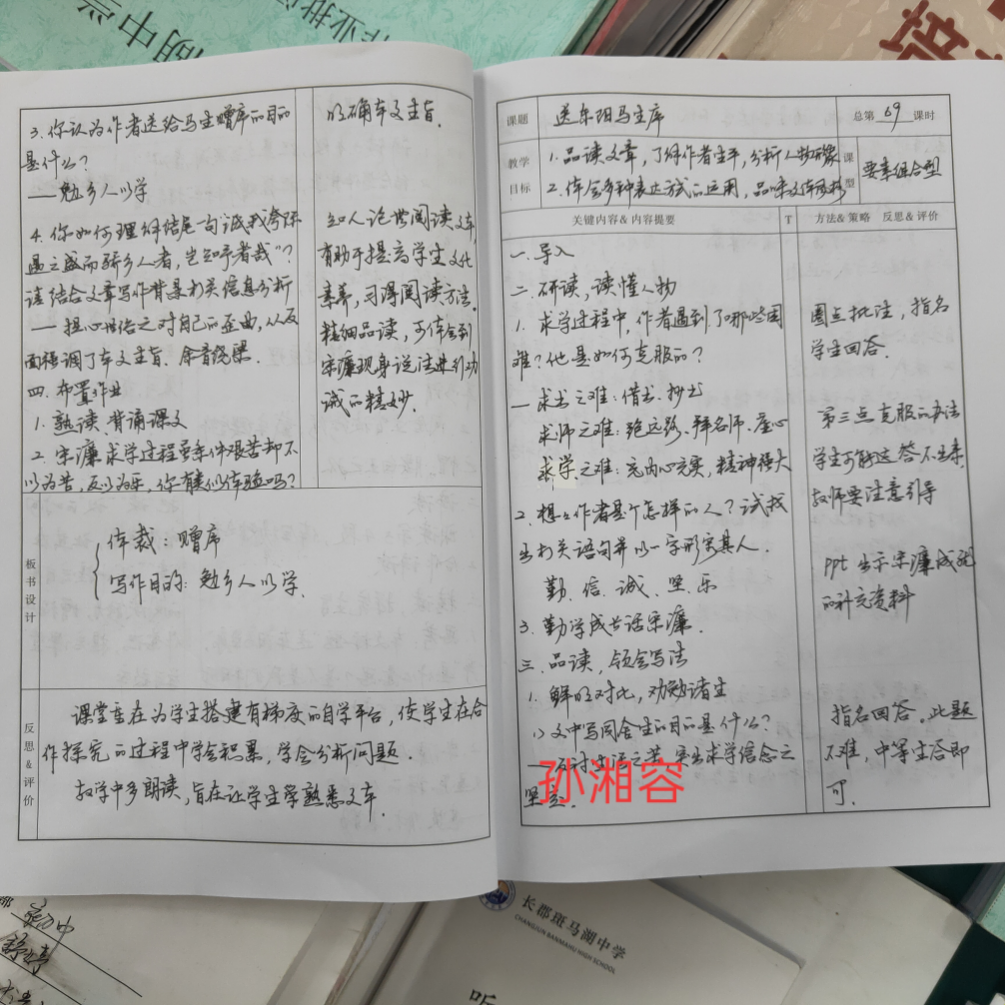 3. 你认为作者送给马生赠序的目的
是什么?
——勉乡人以学
4. 你如何理解结尾一句"诋我夸际
遇之盛而骄乡人者,岂知予者哉"?
请结合文章写作背景相关信息分析
— 担心用俗之对自己的歪曲,从反
面强调了本文主旨.余音绕梁.
四. 布置作业
1. 熟读、背诵课文
2. 宋濂求学过程虽条件艰苦却不
以为苦,反以为乐,你有类似体验吗?
明确本文主旨.
知人论世阅读文本,
有助于提高学生文化
素养,习得阅读方法.
精细品读,可体会到
宋濂现身说法进行劝
诫的精妙.
板书设计
体裁:赠序
写作目的:勉乡人以学.
反思&评价
课堂旨在为学生搭建有梯度的自学平台,使学生在合
作探究的过程中学会积累,学会分析问题.
教学中多朗读,旨在让学生学熟悉文本.
课题
送东阳马生序
总第 69 课时
教学目标
1. 品读文章,了解作者生平,分析人物形象
2. 体会多种表达方式的运用,品味文体风格
课型
要素组合型
关键内容&内容提要
T
方法&策略 反思&评价
一. 导入
二. 研读,读懂人物
1. 求学过程中,作者遇到了哪些困
难?他是如何克服的?
— 求书之难:借书、抄书
求师之难:跑远路、拜名师、虚心
求学之难:充内心充实,精神强大
2. 想想作者是个怎样的人?试找
出相关语句并以一字形容其人.
勤、信、诚、坚、乐
3. 勤学成长话宋濂.
三. 品读,领会写法
1. 鲜明对比,劝勉诸生
1) 文中写同舍生的目的是什么?
—反衬生活之苦,突出求学信念之
坚定.
圈点批注,指名
学生回答.
第三点克服的办法
学生可能这答不出来
教师要注意引导
ppt 出示宋濂成就
的补充资料
指名回答,此题
不难,中等生答即
可.
孙湘容
长郡斑马湖中学
CHANGJUN BANMAHU HIGH SCHOOL
听